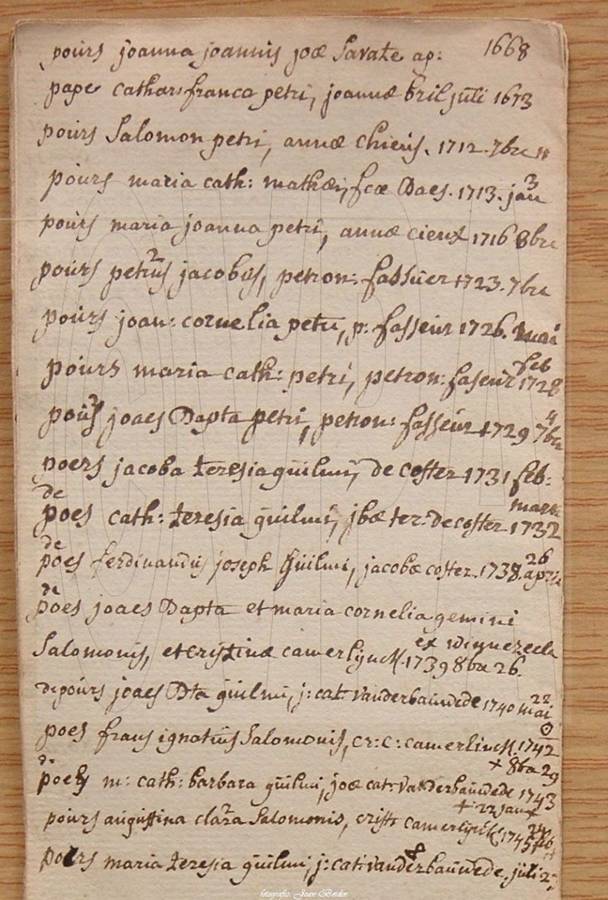 pours joanna joannis joæ Savate ap: 1668
pape cathar: franca petri, joannæ bril juli 1673
pours Salomon petri, annæ chieus. 1712. 7bre 11
pours maria cath: mathæi, fcæ Daes. 1713. jan 3
pours maria joanna petri, annæ cieux 1716 8bre
pours petrus jacobus, petron: fasseur 1723. 7bre
pours joan: cornelia petri, p: fasseur 1726. maii
pours maria cath: petri, petron: faseur 1728 feb
pours joaes Bapta petri, petron: fasseur 1729 7bre 4
poers jacoba teresia guilmi, de coster 1731 feb:
de poes cath: teresia guilmi, jbæ ter: de coster 1732 mars
de poes ferdinandus joseph guilmi, jacobæ coster. 1738. 26 april
de poes joaes Bapta et maria cornelia gemini
Salomonis, et cristinæ camerlynck. 1739 8bre 26. ex winnezeele
depours joaes Bta guilmi, j: cat: vanderbauwede 1740 22 maii
poes frans ignatius Salomonis, cr: c: camerlinck. 1742
+ 8bre 29
de poes m: cath: barbara guilmi, joæ cat: vanderbauwede 1743
+ 22 jan
pours augustina clara Salomonis, crist: camerlynck 1745 feb
pours maria teresia guilmi, j: cat: vanderbauwede, juli
fotografie: